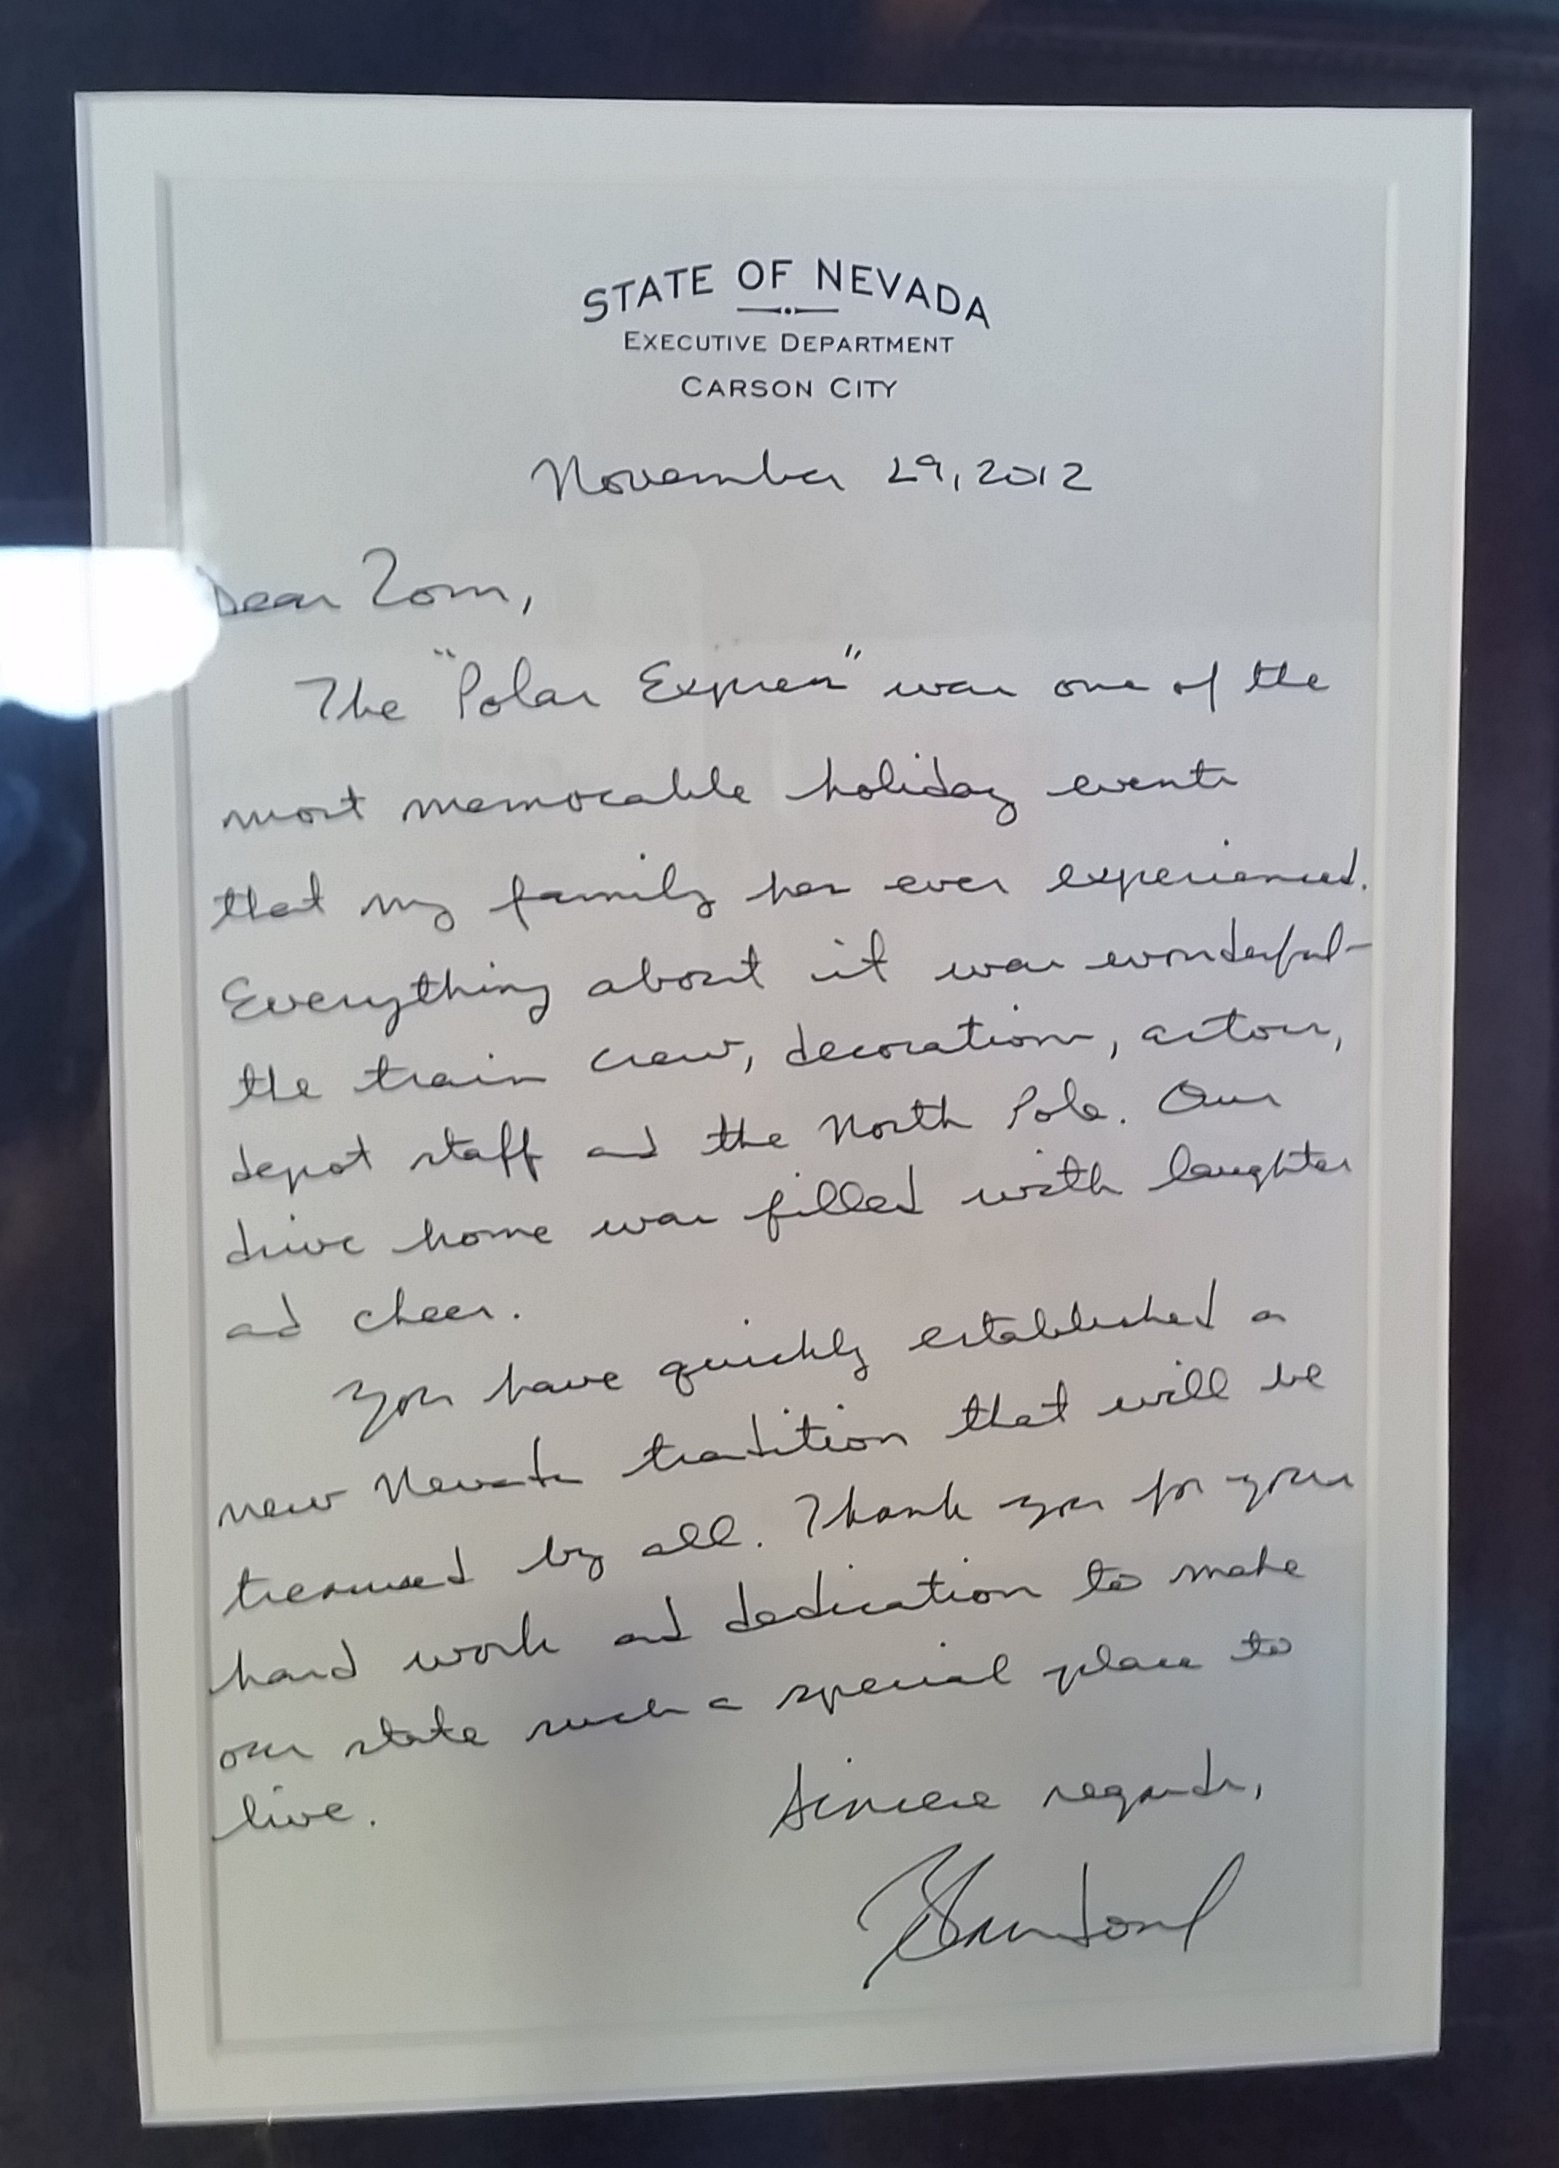 STATE OF NEVADA
EXECUTIVE DEPARTMENT
CARSON CITY
November 29, 2012
Dear Tom,
The "Polar Express" was one of the
most memorable holiday events
that my family has ever experienced.
Everything about it was wonderful-
the train crew, decorations, actors,
depot staff and the North Pole. Our
drive home was filled with laughter
and cheer.
You have quickly established a
new Nevada tradition that will be
treasured by all. Thank you for your
hard work and dedication to make
our state such a special place to
live.
Sincere regards,
Sandoval